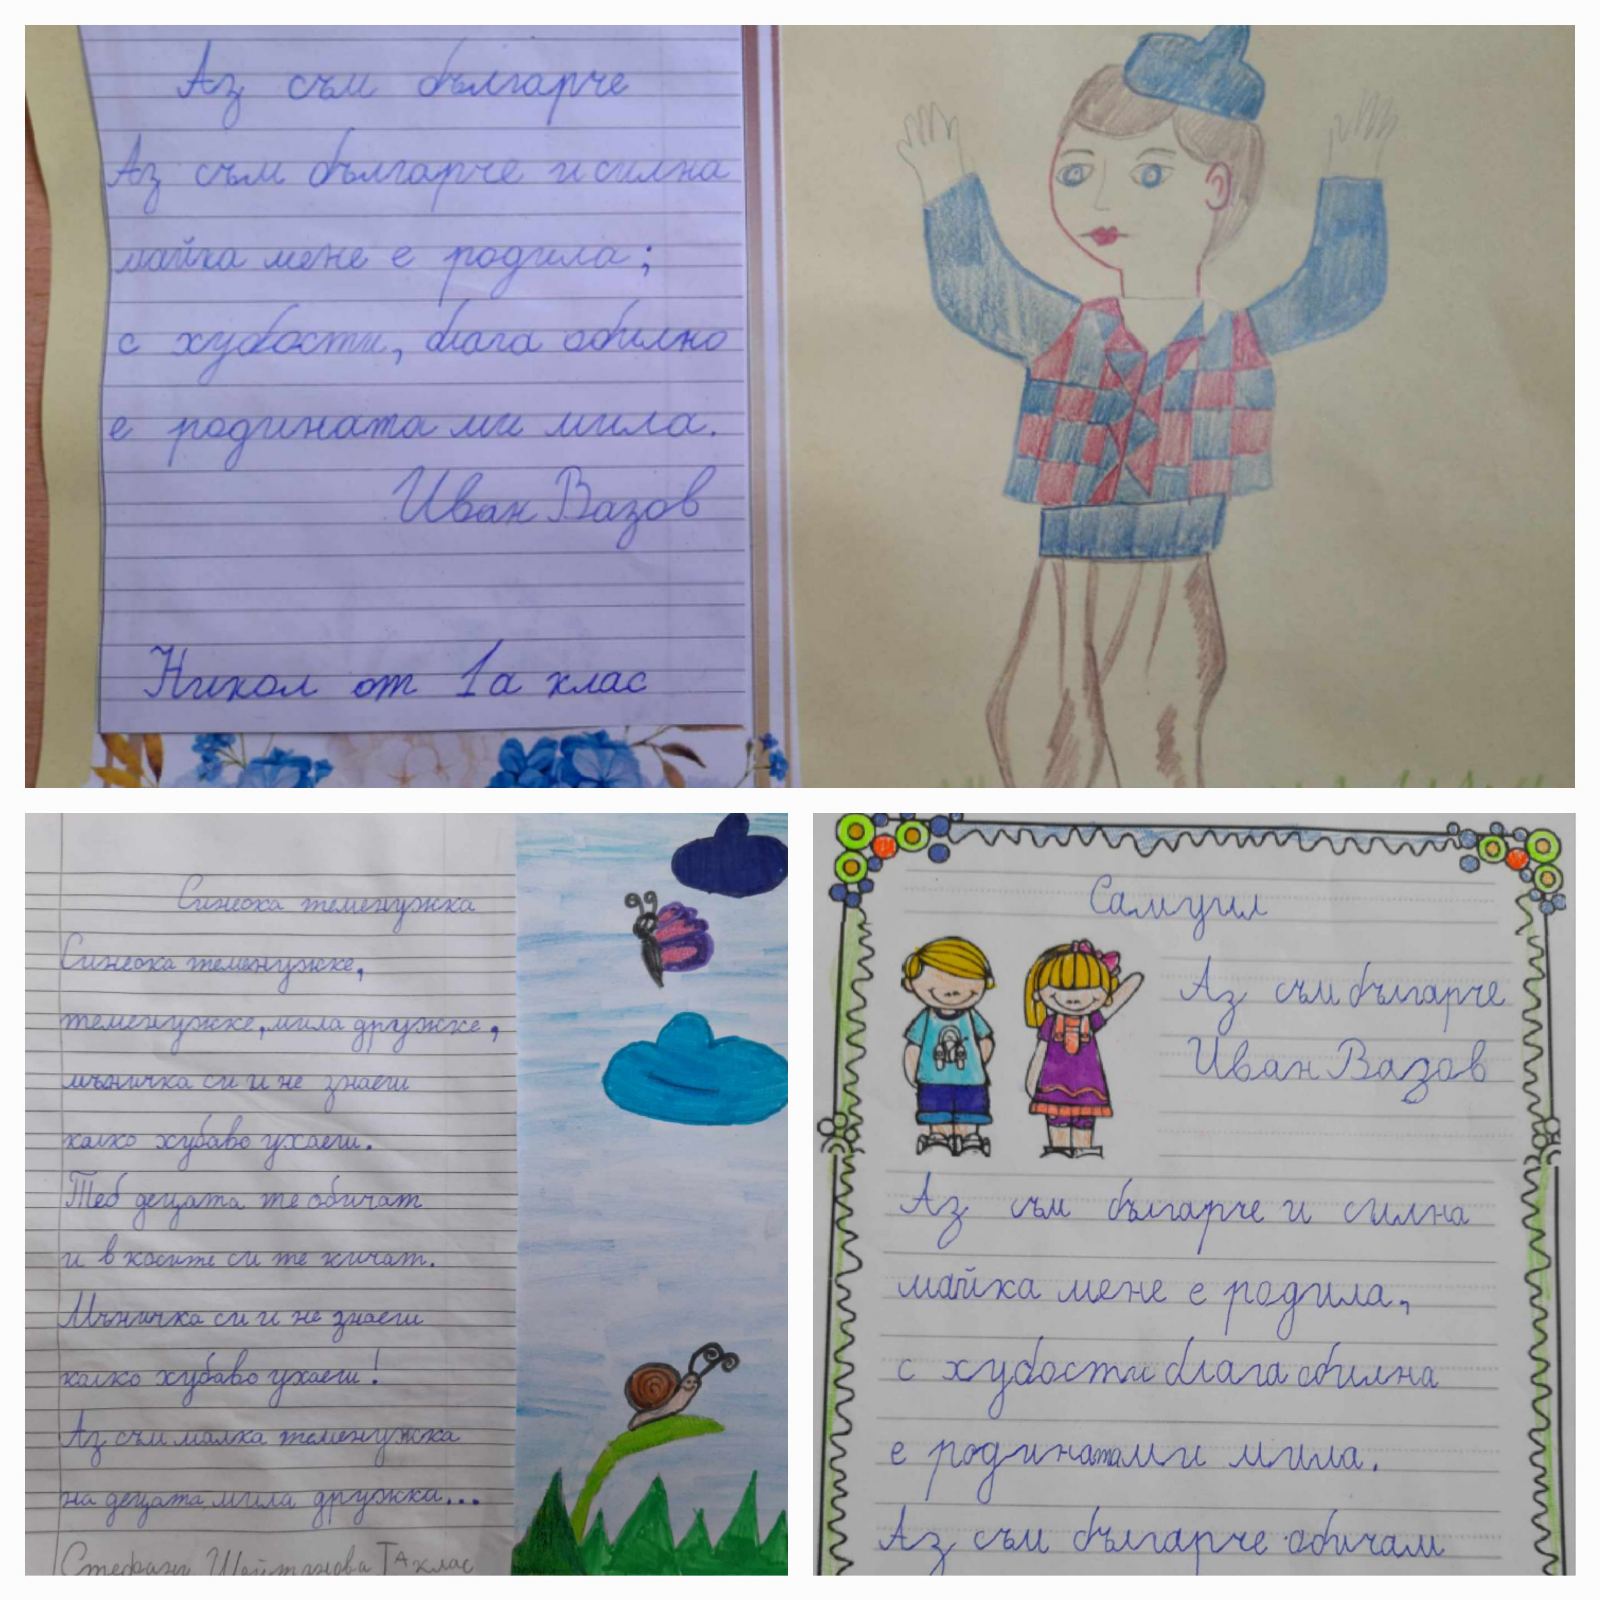 Аз съм българче
Аз съм българче и силна
майка мене е родила;
с хубости, блага обилно
е родината ми мила.
Иван Вазов
Никол от 1а клас
Синеока теменужка
Синеока теменужке,
теменужке, мила дружке,
мъничка си и не знаеш
колко хубаво ухаеш.
Теб децата те обичат
и в косите си те кичат.
Мъничка си и не знаеш
колко хубаво ухаеш!
Аз съм малка теменужка
на децата мила дружка...
Стефани Шейтанова I А клас
Самуил
Аз съм българче
Иван Вазов
Аз съм българче и силна
майка мене е родила,
с хубости блага обилна
е родината ми мила.
Аз съм българче обичам